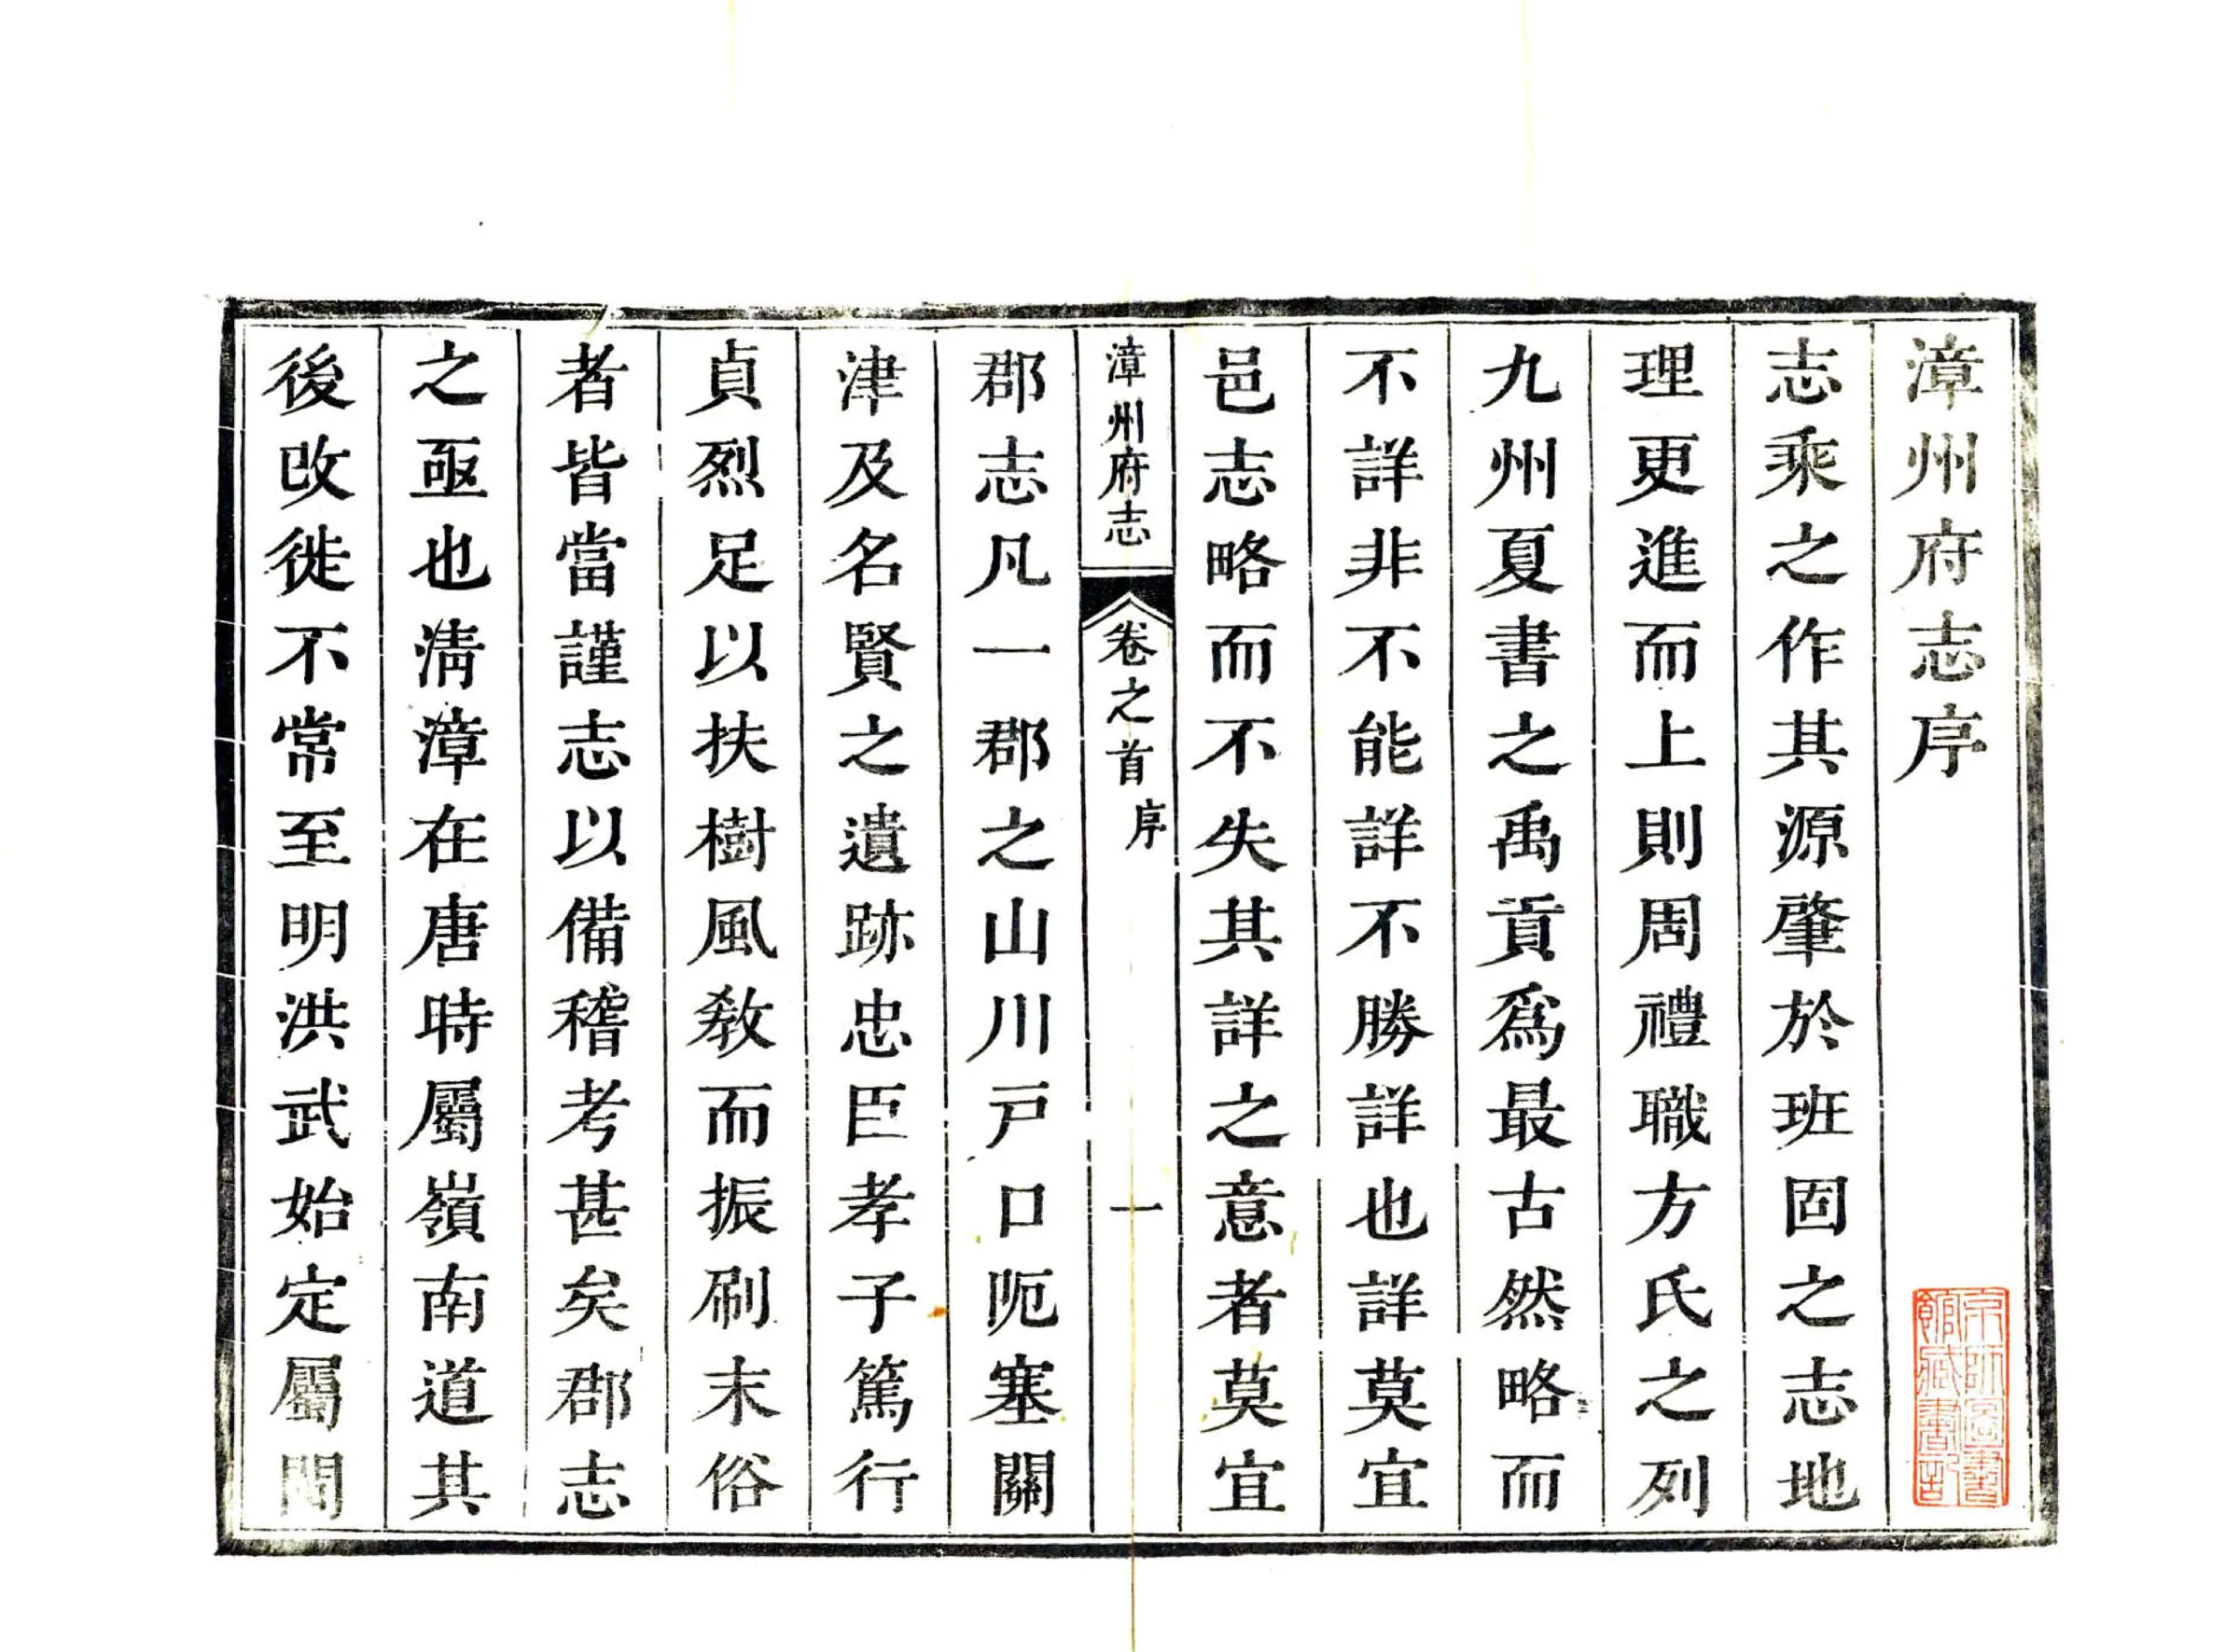 漳州府志序
志乘之作其源肇於班固之志地
理更進而上則周禮職方氏之列
九州夏書之禹貢爲最古然略而
不詳非不能詳不勝詳也詳莫宜
邑志略而不失其詳之意者莫宜
漳州府志 卷之首 序 一
郡志凡一郡之山川戸口阨塞關
津及名賢之遺跡忠臣孝子篤行
貞烈足以扶樹風敎而振刷末俗
者皆當謹志以備稽考甚矣郡志
之亟也淸漳在唐時屬嶺南道其
後改徙不常至明洪武始定屬閩
京師圖書
館藏書記